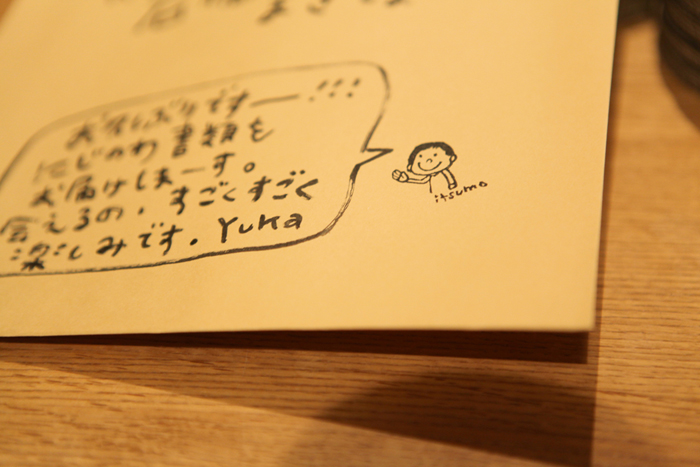 お久しぶりですー!!!
にじのわ書類を
お届けしまーす。
会えるの、すごくすごく
楽しみです。Yuka
itsumo